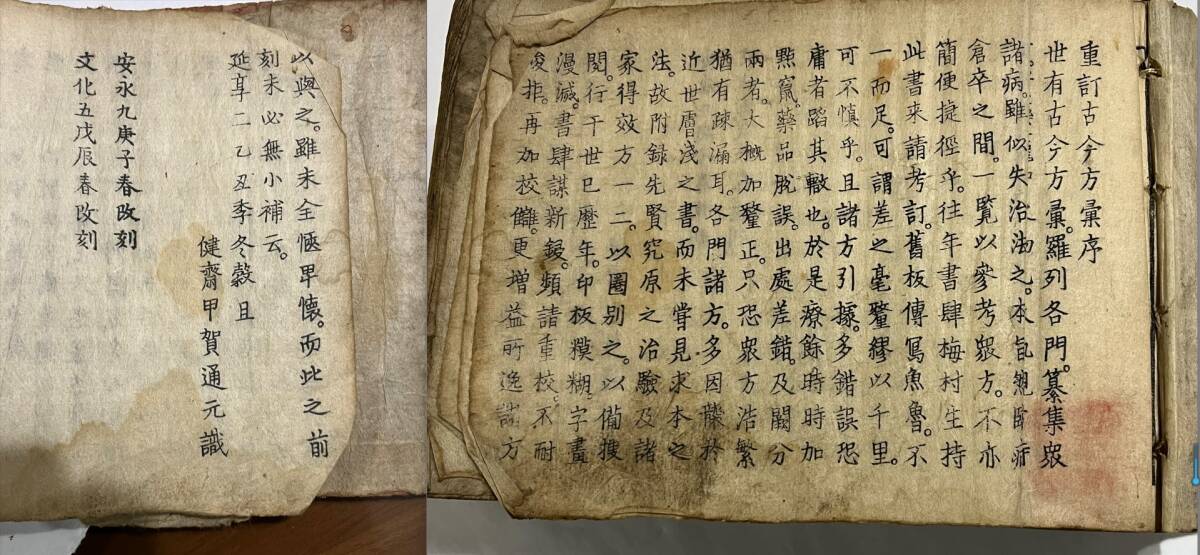 重訂古今方彙序
世有古今方彙。羅列各門。纂集眾
諸病。雖似失治之。本
倉卒之間。一覽以參考眾方。不亦
簡便捷徑乎。往年書肆梅村生持
此書来請考訂。舊板傳寫魚魯。不
一而足。可謂差之毫釐繆以千里。
可不慎乎。且諸方引據。多錯誤恐
庸者蹈其轍也。於是療餘時時加
點竄。藥品脫誤。出處差錯。及闕分
兩者。大概加釐正。只恐眾方浩繁
猶有疎漏耳。各門諸方。多因於
近世膚淺之書。而未嘗見求本之
法。故附録先賢究原之治驗及諸
家得效方一二。以圈別之。以備搜
閱。行于世已歷年。印板糢糊。字畫
漫滅。書肆謀新鋟。頻請重校。不耐
峻拒。再加校讎。更增益所逸諸方
以與之。雖未全愜卑懷。而此之前
刻未必無小補云。
延享二乙丑季冬穀且
健齋甲賀通元識
安永九庚子春改刻
文化五戊辰春改刻